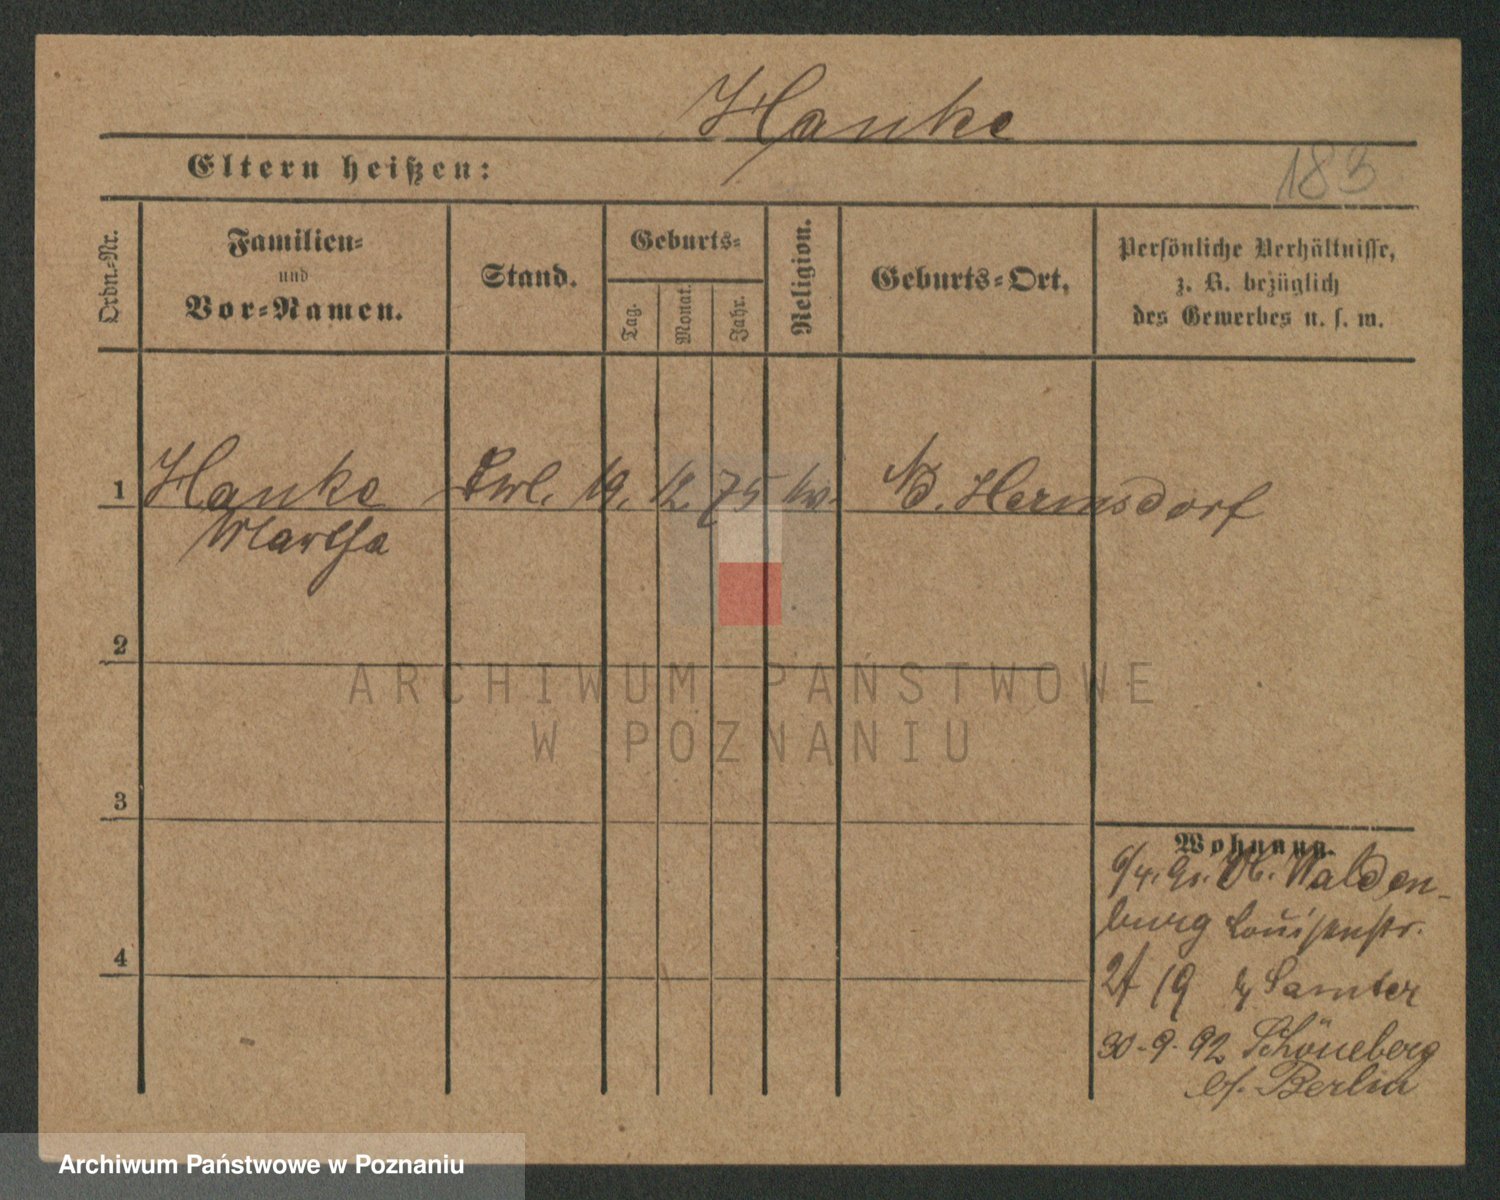 Hanke
Eltern heißen:
183
Ordn.-Nr.
Familien-
und
Vor-Namen.
Stand.
Geburts-
Tag.
Monat.
Jahr.
Religion.
Geburts-Ort.
Persönliche Verhältnisse,
z. B. bezüglich
des Gewerbes u. s. w.
1 Hanke 19. 12. 75 N. Hermsdorf
Martha
2
3
4
Wohnung.
6/4. 91. Walden-
burg Louisenstr.
19 Samter
30-9-92 Schöneberg
b/. Berlin
ARCHIWUM PAŃSTWOWE
W POZNANIU
Archiwum Państwowe w Poznaniu